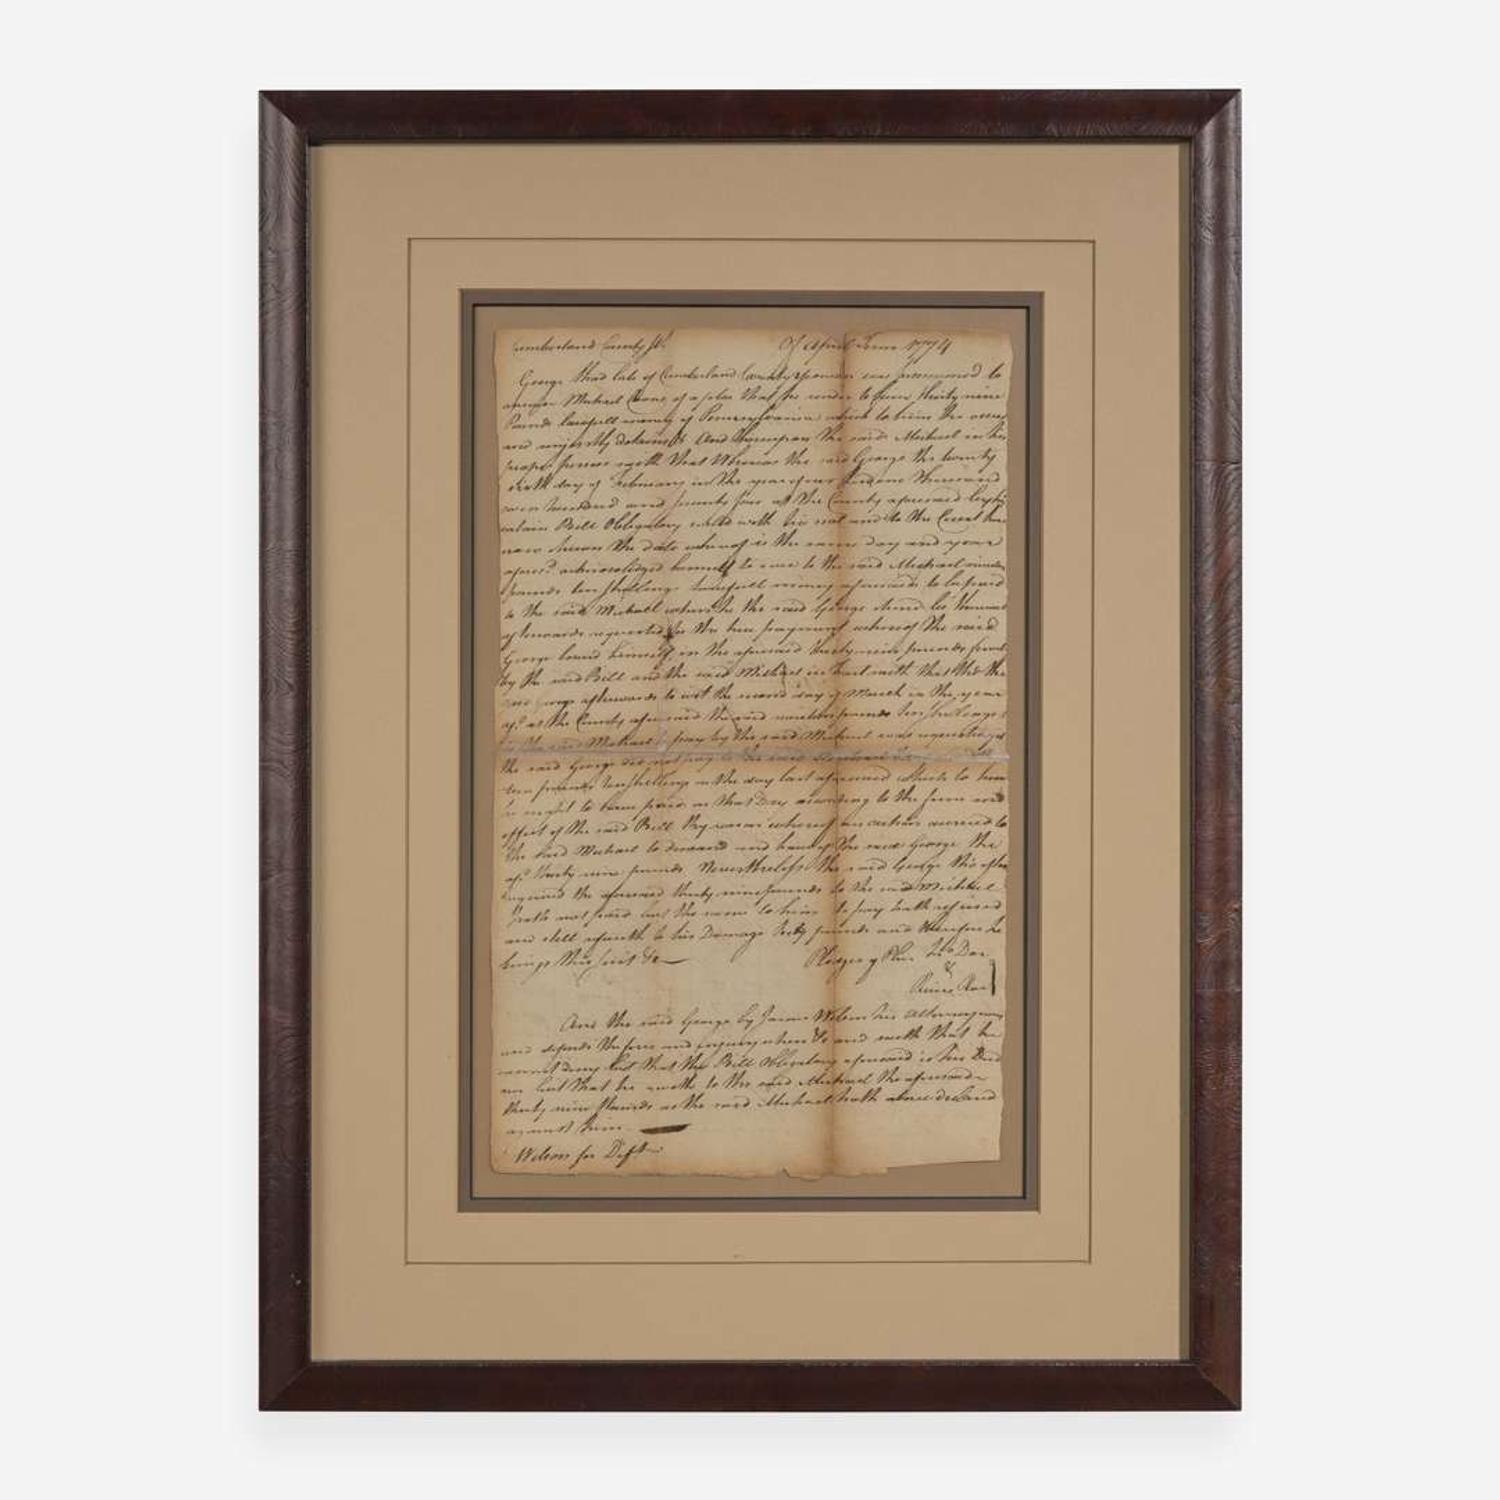 Cumberland County ss. Of April Term 1774
George late of Cumberland County yeoman was summoned to
answer Michael of a plea that he render to him thirty nine
Pounds lawfull money of Pennsylvania which to him he owes
and unjustly detaineth And thereupon the said Michael in his
proper person saith that Whereas the said George the twenty
sixth day of February in the year of our Lord one thousand
seven hundred and seventy four at the County aforesaid by his
certain Bill Obligatory sealed with his seal and to the Court here
now shewn the date whereof is the same day and year
afores.d acknowledged himself to owe to the said Michael nineteen
pounds ten shillings lawfull money aforesaid to be paid
to the said Michael when he the said George should be thereunto
afterwards requested to the true payment whereof the said
George bound himself in the aforesaid thirty nine pounds
by the said Bill and the said Michael in fact saith that tho the
said George afterwards to wit the second day of March in the year
af.d at the County aforesaid the said nineteen pounds ten shillings
to the said Michael to pay by the said Michael was requested yet
the said George did not pay to the said Michael the
teen pounds ten shillings on the day last aforesaid which to him
he ought to have paid on that Day according to the form and
effect of the said Bill By reason whereof an action accrued to
the said Michael to demand and have of the said George the
af.d thirty nine pounds Nevertheless the said George tho often
required the aforesaid thirty nine pounds to the said Michael
hath not paid but the same to him to pay hath refused
and still refuseth to his Damage pounds and therefore he
brings this suit &c
Pledges of Jno Doe
&
Rich.d Roe
And the said George by James Wilson his attorney comes
and defends the force and injury when &c and saith that he
cannot deny but that the Bill Obligatory aforesaid is his Deed
nor but that he oweth to the said Michael the aforesaid
thirty nine Pounds as the said Michael hath above declared
against him
Wilson for Deft